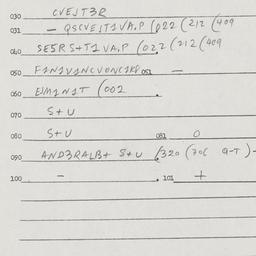 030 CVEJT3R
031 - QSCVEJT1VA.P (022 (212 (409
040 SE5R S+T1 VA.P (022 (212 (409
050 F1N1V1NCVONC1KP 051 -
060 EJM1N1T (002 .
070 S+U
080 S+U 081 0
090 AND3RALB+ S+U (320 (70C 9-T)-
100 - . 101 +